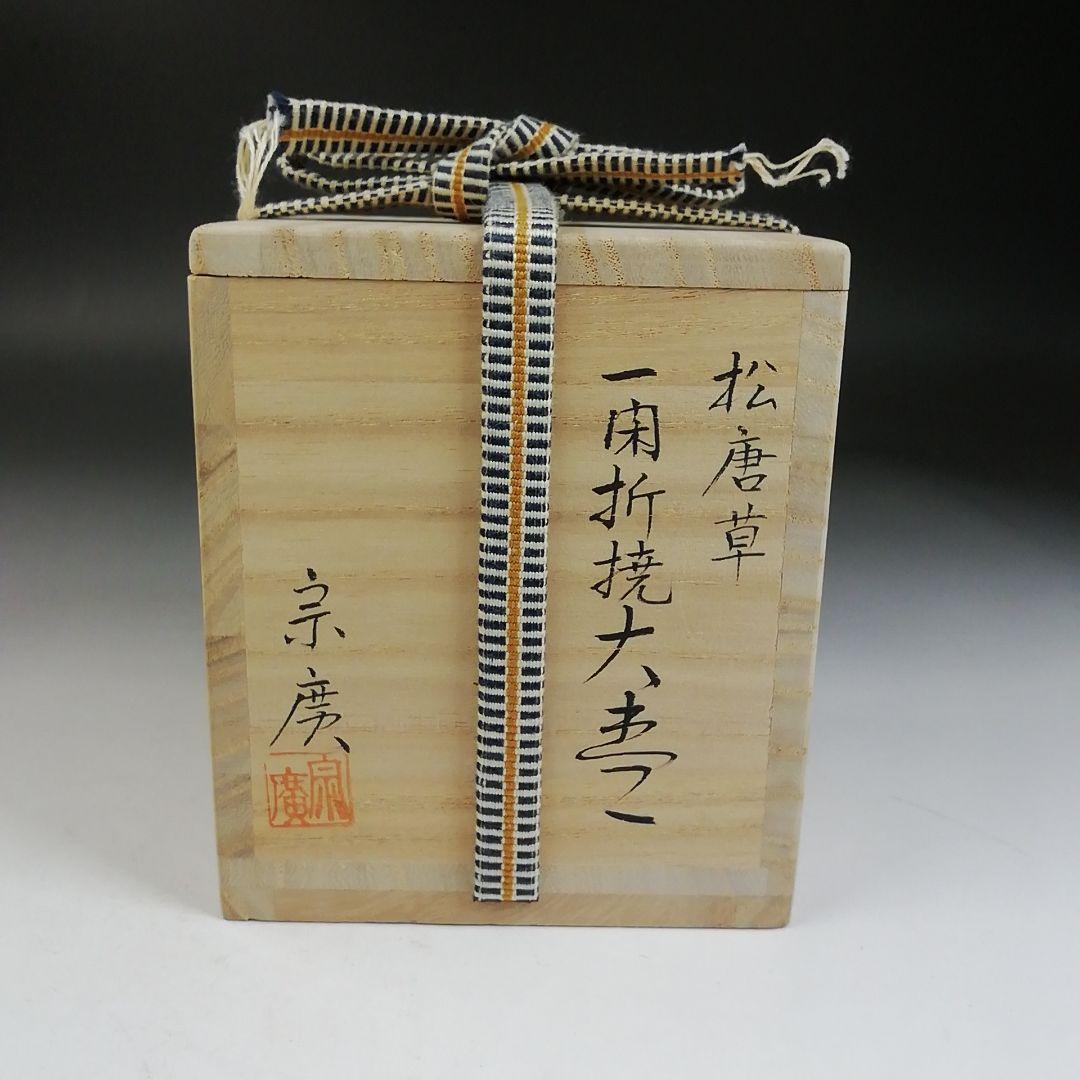 松唐草
一閑折撓大棗
宗廣
宗廣